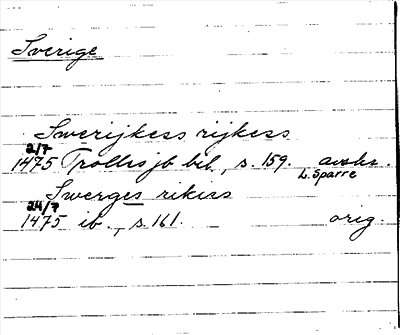 Sverige
Swerijkess rijkess
2/7
1475 Trolles jb bil., s. 159. avskr.
L. Sparre
Swerges rikess
24/7
1475 ib., s. 161. orig.